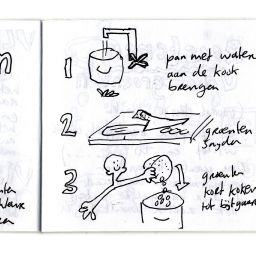 n
1
pan met water
aan de kook
brengen
2
groenten
snyden
3
groenten
kort koken
tot bijtgaar